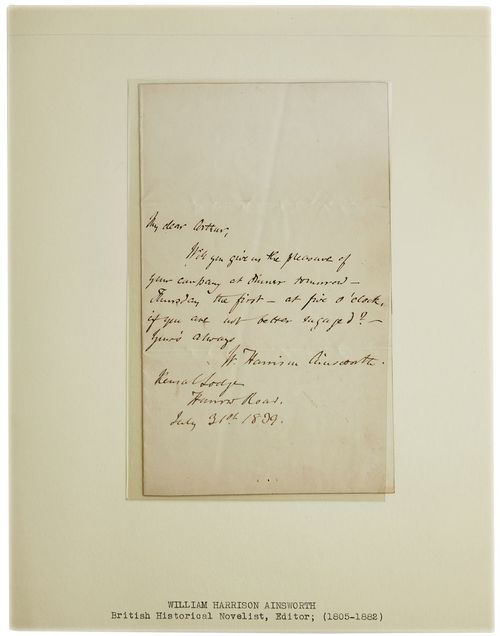 My dear Arthur,
Will you give us the pleasure of
your company at dinner tomorrow –
Thursday the first – at five o'clock,
if you are not better engaged? –
Yours always
W. Harrison Ainsworth.
Kensal Lodge
Harrow Road.
July 31st 1839.
WILLIAM HARRISON AINSWORTH
British Historical Novelist, Editor; (1805-1882)